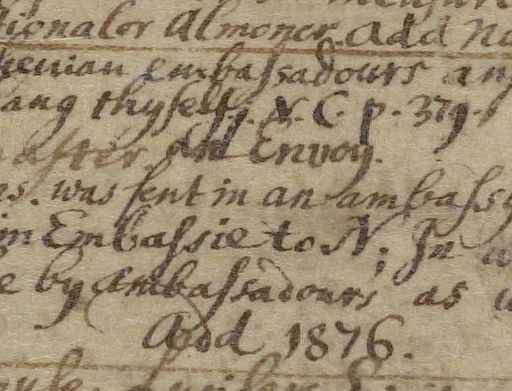 Almoner. Add
embassadours
hang thyself. N. C. p. 379.
after. Add Envoy.
was sent in an ambassy
in Embassie to N; In
by ambassadours as
Add 1876.